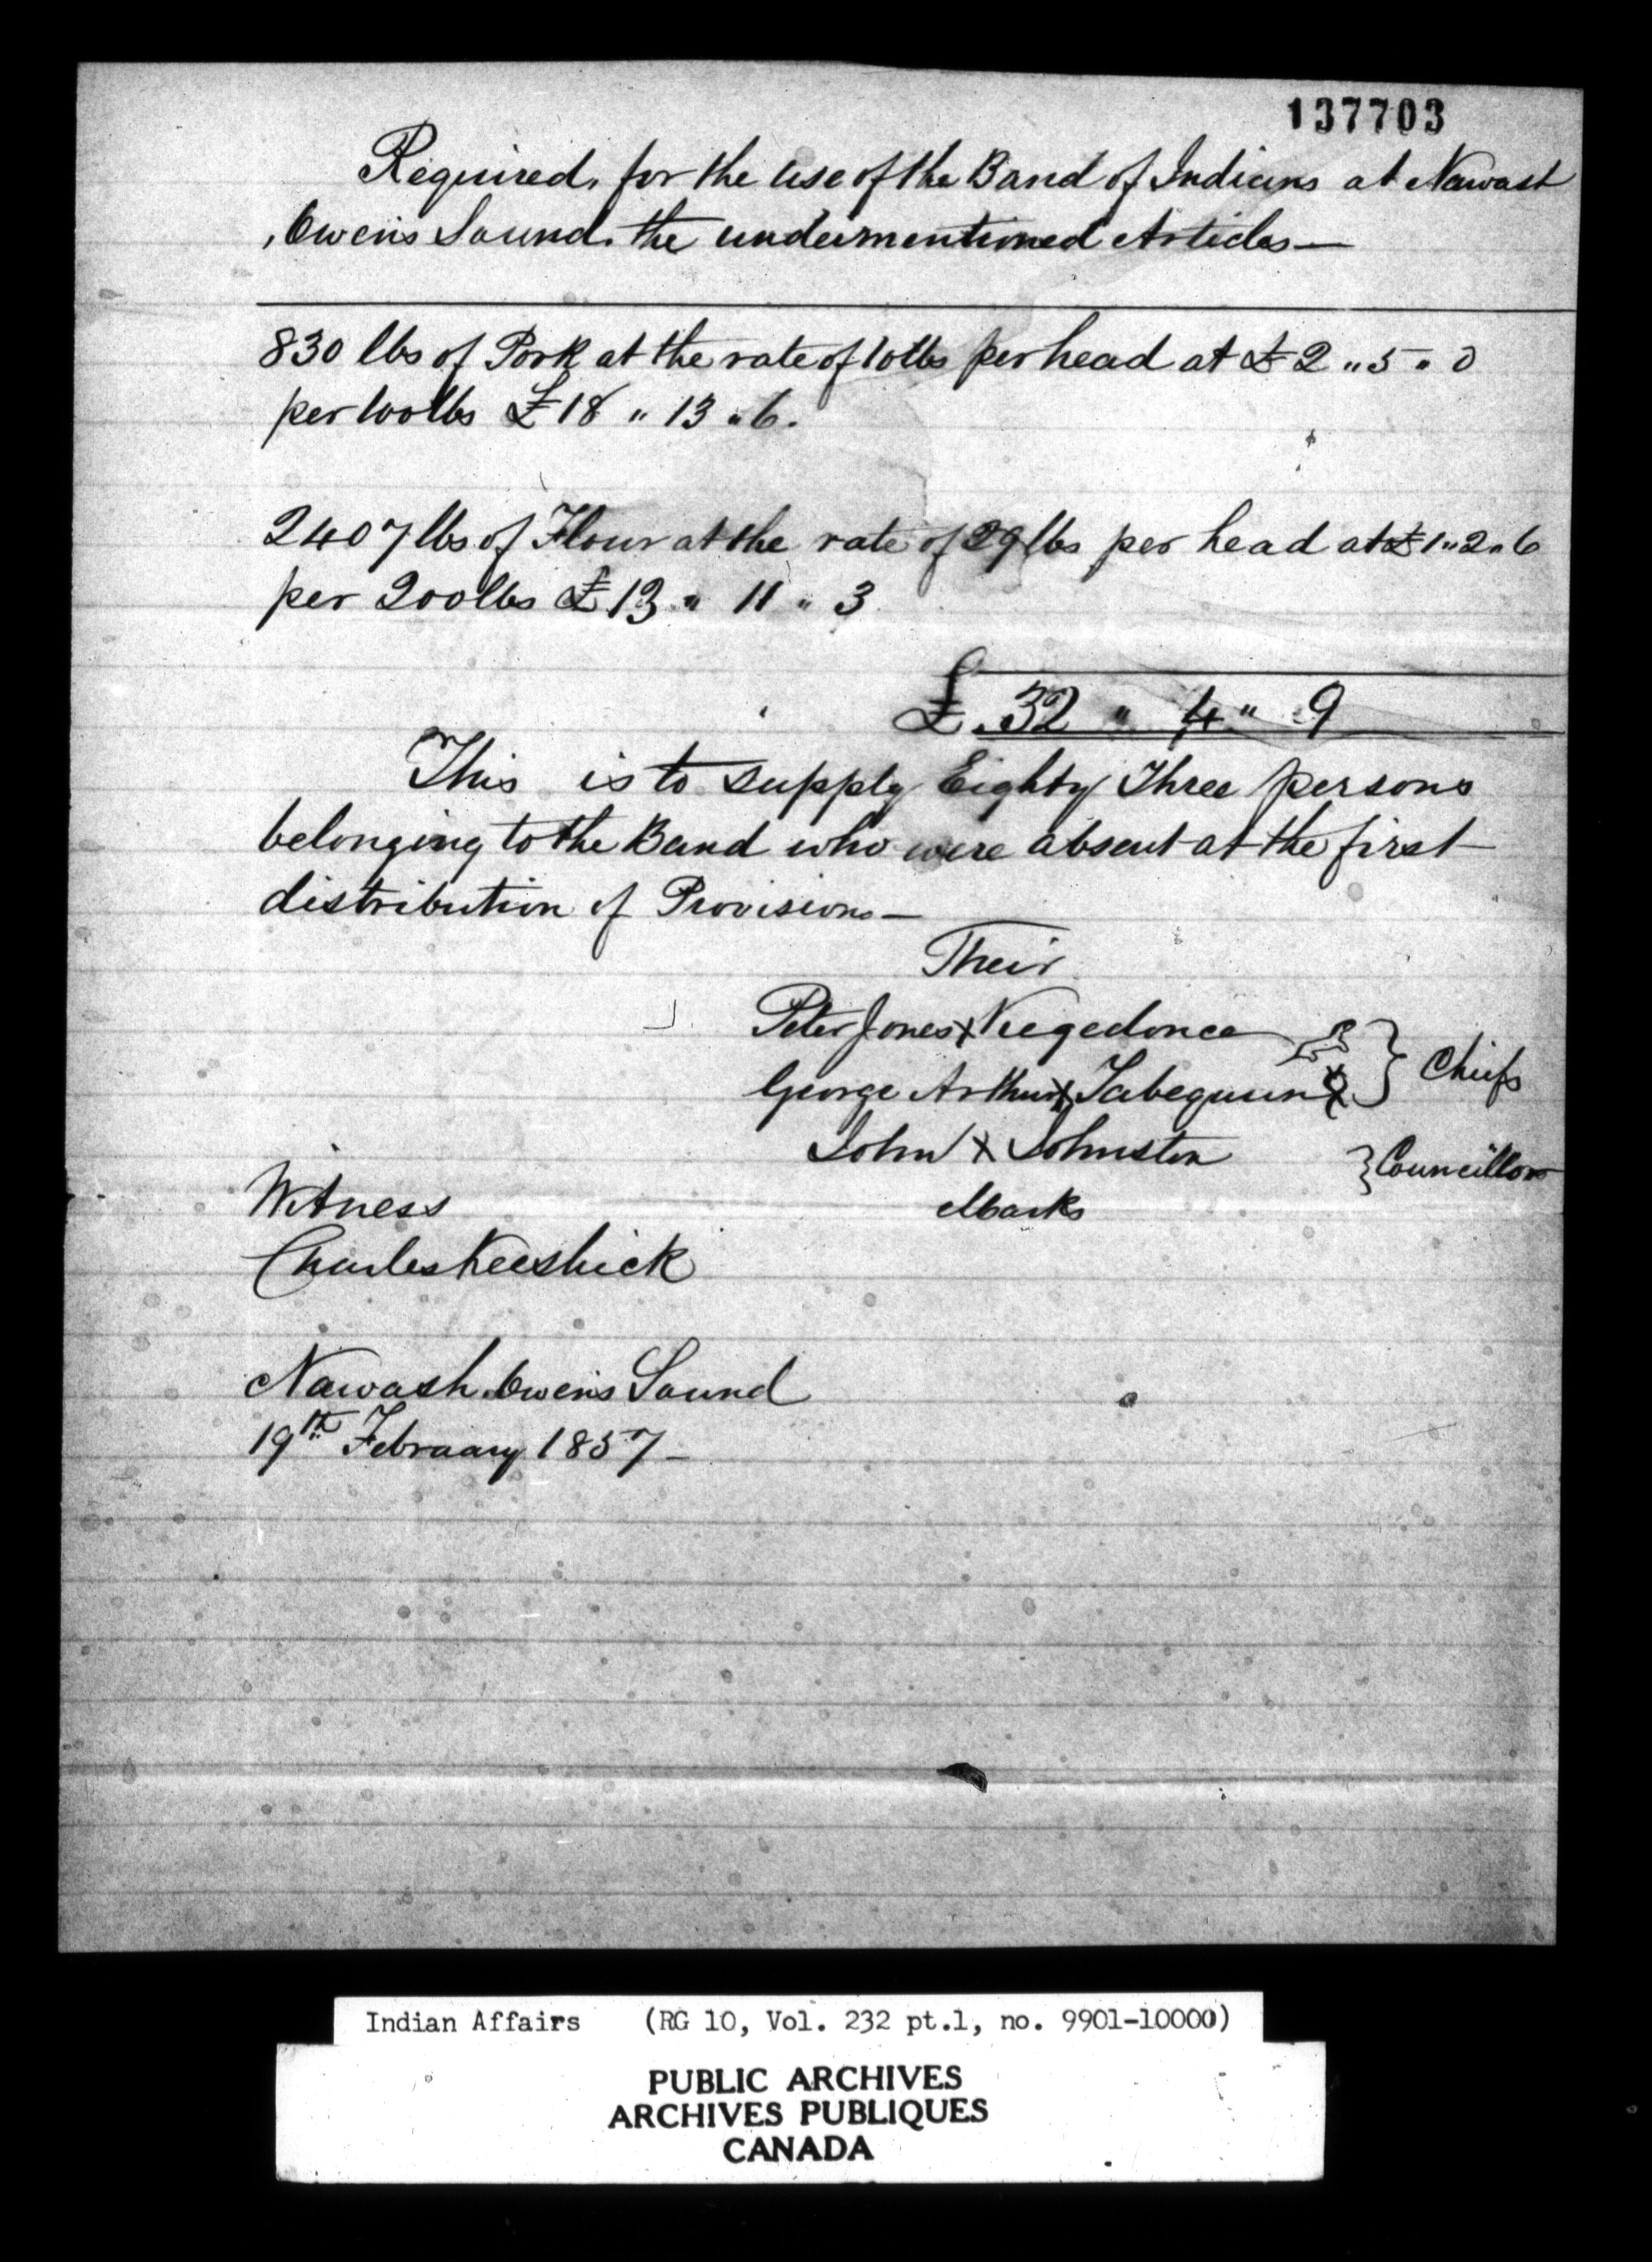 137703
Required, for the use of the Band of Indians at Nawash
, Owen's Sound, the undermentioned Articles—
830 lbs of Pork at the rate of 10 lbs per head at £2 " 5 " 0
per 100 lbs £18 " 13 " 6.
2407 lbs of Flour at the rate of 29 lbs per head at £1 " 2 " 6
per 200 lbs £13 " 11 " 3
£. 32 " 4 " 9
This is to supply Eighty Three persons
belonging to the Band who were absent at the first
distribution of Provisions—
Their
Peter Jones X Keegedonce
George Arthur X Tabeguun } Chiefs
John X Johnston } Councillor
Witness Marks
Charles Keeshick
Nawash Owen's Sound
19th February 1857—
Indian Affairs (RG 10, Vol. 232 pt.1, no. 9901-10000)
PUBLIC ARCHIVES
ARCHIVES PUBLIQUES
CANADA